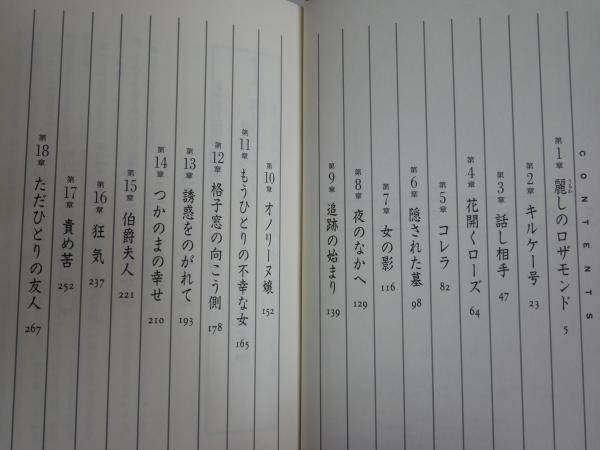 CONTENTS
第1章 麗しのロザモンド 5
うるわ
第2章 キルケー号 23
第3章 話し相手 47
第4章 花開くローズ 64
第5章 コレラ 82
第6章 隠された墓 98
第7章 女の影 116
第8章 夜のなかへ 129
第9章 追跡の始まり 139
第10章 オノリーヌ嬢 152
第11章 もうひとりの不幸な女 165
第12章 格子窓の向こう側 178
第13章 誘惑をのがれて 193
第14章 つかのまの幸せ 210
第15章 伯爵夫人 221
第16章 狂気 237
第17章 責め苦 252
第18章 ただひとりの友人 267